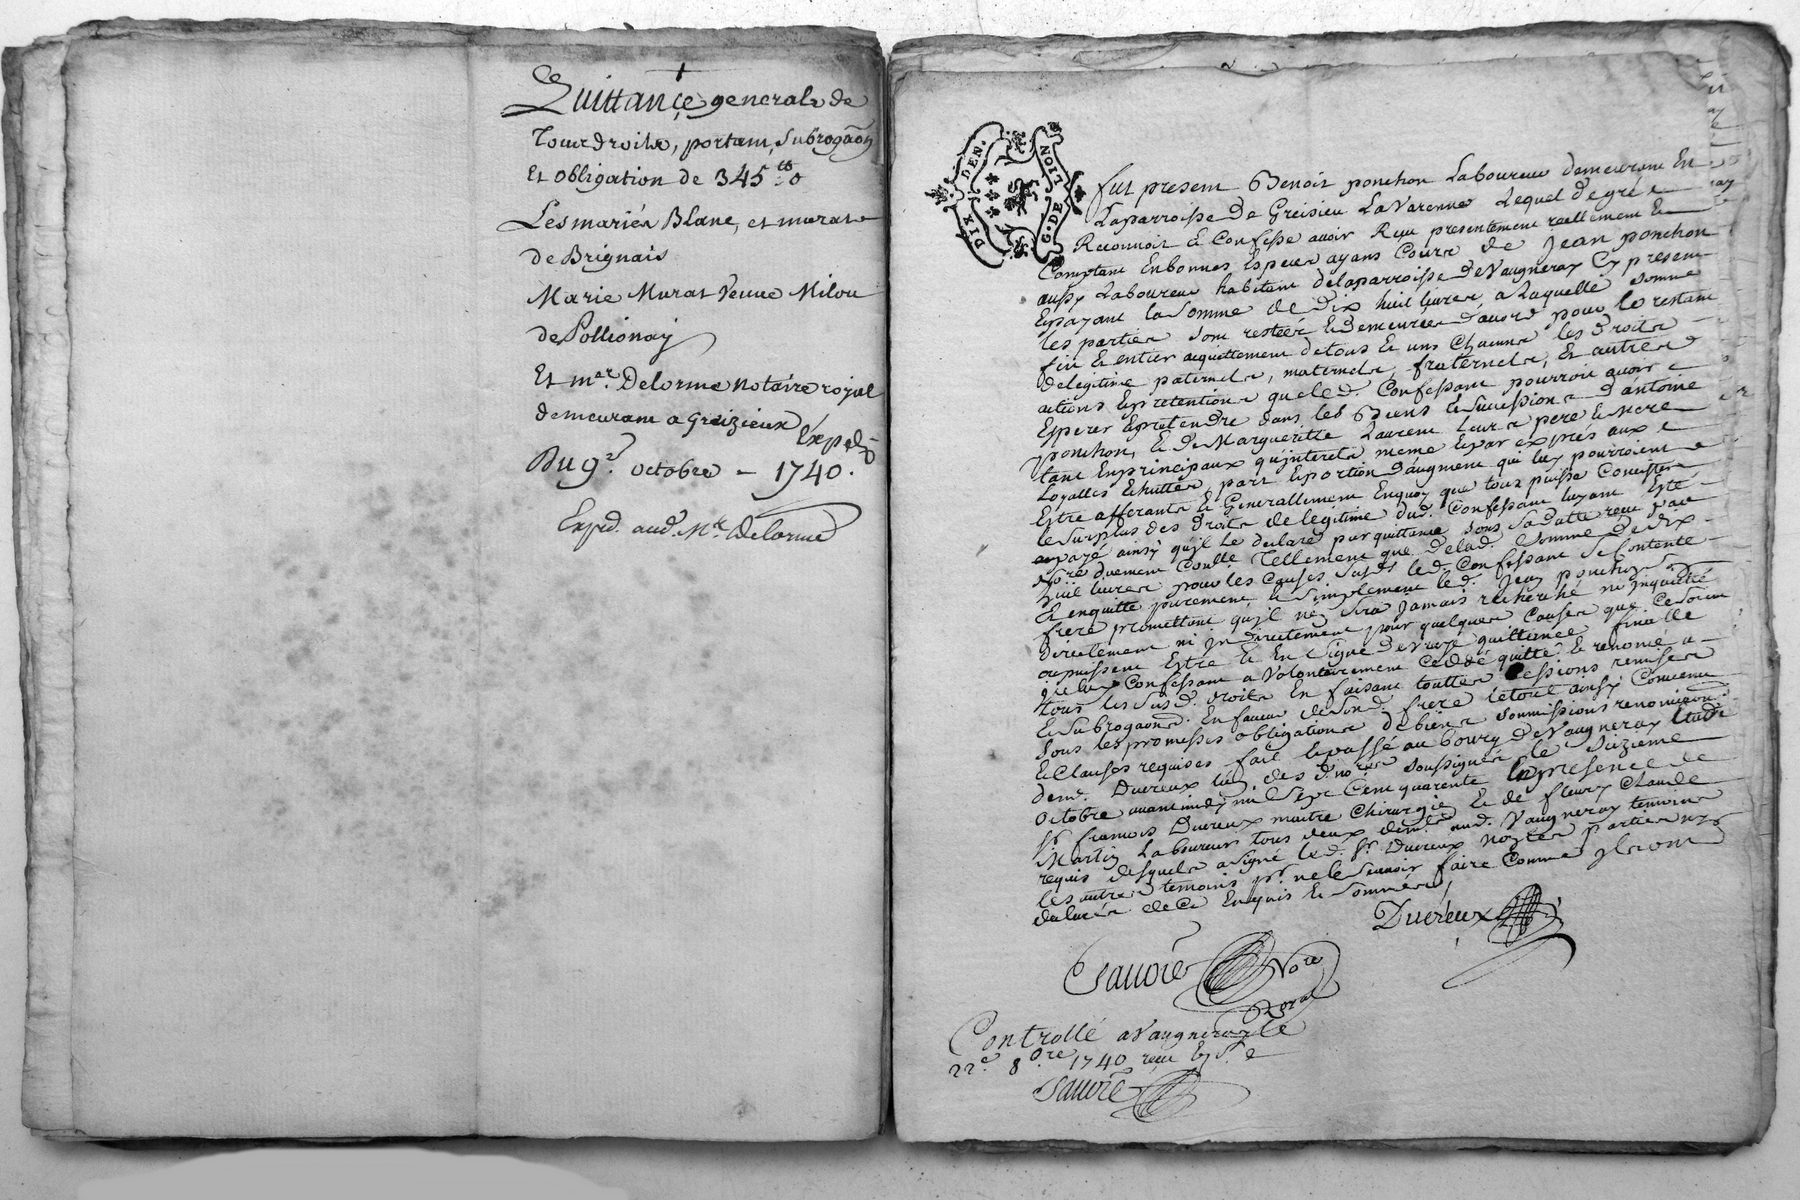 Quittance generale de
Tous droits, portant, subrogaõn
Et obligation de 345 tt 0
Les mariés Blanc, et murat
de Brignais
Marie Murat Veuve Milou
de Pollionay
Et mer. Delorme notaire royal
demeurant a Greizieux
Exped.
Du 9e. octobre - 1740.
Exped. aud. Me. Delorme
DIX DEN.
G. DE LION
fut present Benoit ponchon Laboureur demeurant En
Laparroisse de Greisieu La Varenne Lequel de gré
Reconnoit & Confesse avoir Reçu presentement reellement &
Comptant En bonnes Especes ayans Cours de Jean ponchon
aussy Laboureur habitant de laparroisse de Vaugneray Cy present
Et payant la somme de Dix huit livres, a Laquelle somme
les parties sont restées & demeurées d'acord pour le restant
fin & entier acquittement de tous & uns Chacuns les droits
de legitime paternels, maternels, fraternels, Et autres
actions & pretentions que led. Confessant pourroit avoir
Esperer & pretendre dans les Biens & succession d'antoine
ponchon, & de Margueritte Laurent leurs pere & mere
tant En principaux qu'interets meme & par exprés aux
Loyalles Echuttes, part & portion d'augment qui luy pourroient
Estre afferants & Generallement En quoy que tous puisse Consister
le surplus des droits de legitime dud. Confessant luy ayant Esté
payé ainsy qu'il le declare par quittance sous sa datte reçu par
nore. duement Conllé Tellement que de lad. somme de dix
huit livres pour les Causes susd. led. Confessant se Contente
Et en quitte purement & simplement led. Jean ponchon
frere promettant qu'il ne sera Jamais recherché ny inquietté
directement ni Indirectement pour quelques Causes que Ce soient
ou puissent Estre & En signe de vraye quittance finalle
led. Confessant a Volontairement Ceddé quitté & renoncé a
tous les susd. droits En faisant touttes Cessions remises
& subrogaons. En faveur de sond. frere le tout ainsy Convenu
sous les promesses obligations de biens soummissions renonciaons.
& Clauses requises fait & passé au bourg de Vaugneray Etude
dem. Ducreux lun des d. nores soussignés le seizieme
octobre avant midy mil sept Cent quarente En presence de
sr. francois Ducreux maitre Chirurgien & de fleury Claude
Martin Laboureur tous deux demts aud. Vaugneray temoins
requis desquels a signé led. sr. Ducreux non les parties ny
les autres temoins pr. ne le scavoir faire Comme Ils ont
declaré de Ce Enquis & sommés
Ducreux
Sauvire Nore
Royal
Controllé a Vaugneray le
22e. 8bre. 1740 reçu 6 s.
Sauvire